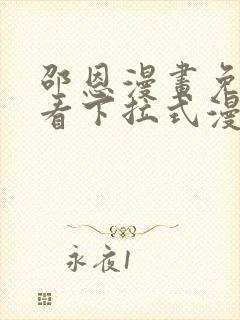 邵恩漫畫免
看下拉式漫
永夜1